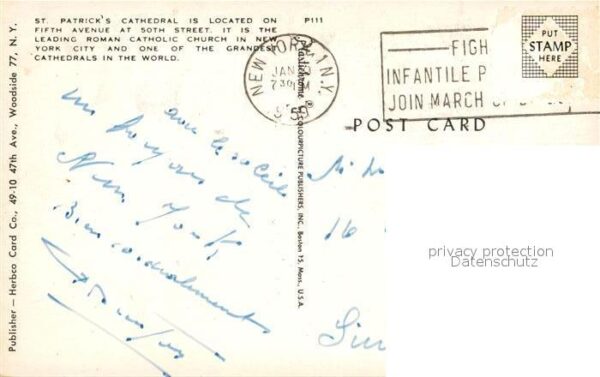 ST. PATRICK'S CATHEDRAL IS LOCATED ON
FIFTH AVENUE AT 50TH STREET. IT IS THE
LEADING ROMAN CATHOLIC CHURCH IN NEW
YORK CITY AND ONE OF THE GRANDEST
CATHEDRALS IN THE WORLD.
P111
Publisher — Herbco Card Co., 49-10 47th Ave., Woodside 77, N. Y.
NEW YORK, 1, N.Y.
JAN
730 PM
FIGH
INFANTILE P
JOIN MARCH OF
PUT
STAMP
HERE
POST CARD
Plastichrome ® COLOURPICTURE PUBLISHERS, INC., Boston 15, Mass., U.S.A.
avec le soleil
un bonjour de
New York
Bien cordialement
16
privacy protection
Datenschutz